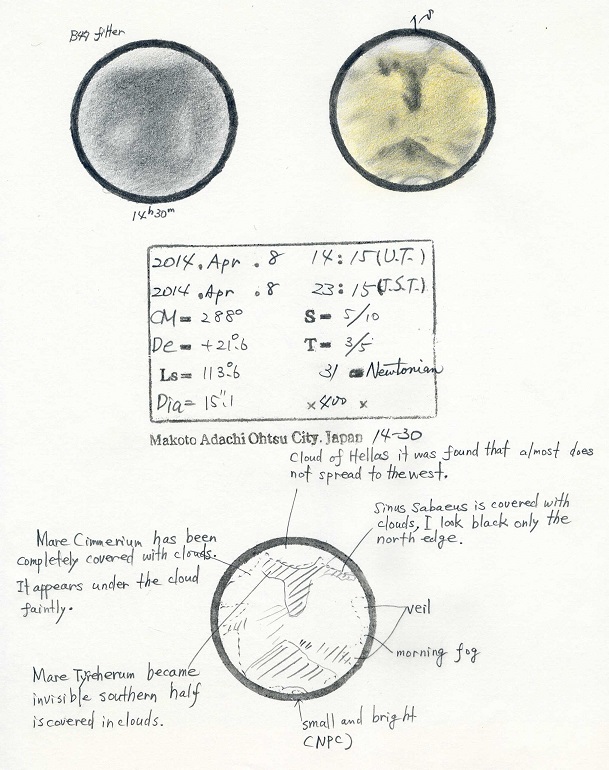 B44 filter
S
14h30m
2014. Apr. 8 14:15 (U.T.)
2014. Apr. 8 23:15 (J.S.T.)
CM= 288° S= 5/10
De= +21°.6 T= 3/5
Ls= 113°.6 31 Newtonian
Dia= 15".1 ×400 ×
Makoto Adachi Ohtsu City. Japan 14-30
Cloud of Hellas it was found that almost does
not spread to the west.
Sinus Sabaeus is covered with
clouds, I look black only the
north edge.
Mare Cimmerium has been
completely covered with clouds.
It appears under the cloud
faintly.
veil
morning fog
Mare Tyreherum became
invisible southern half
is covered in clouds.
small and bright
(NPC)